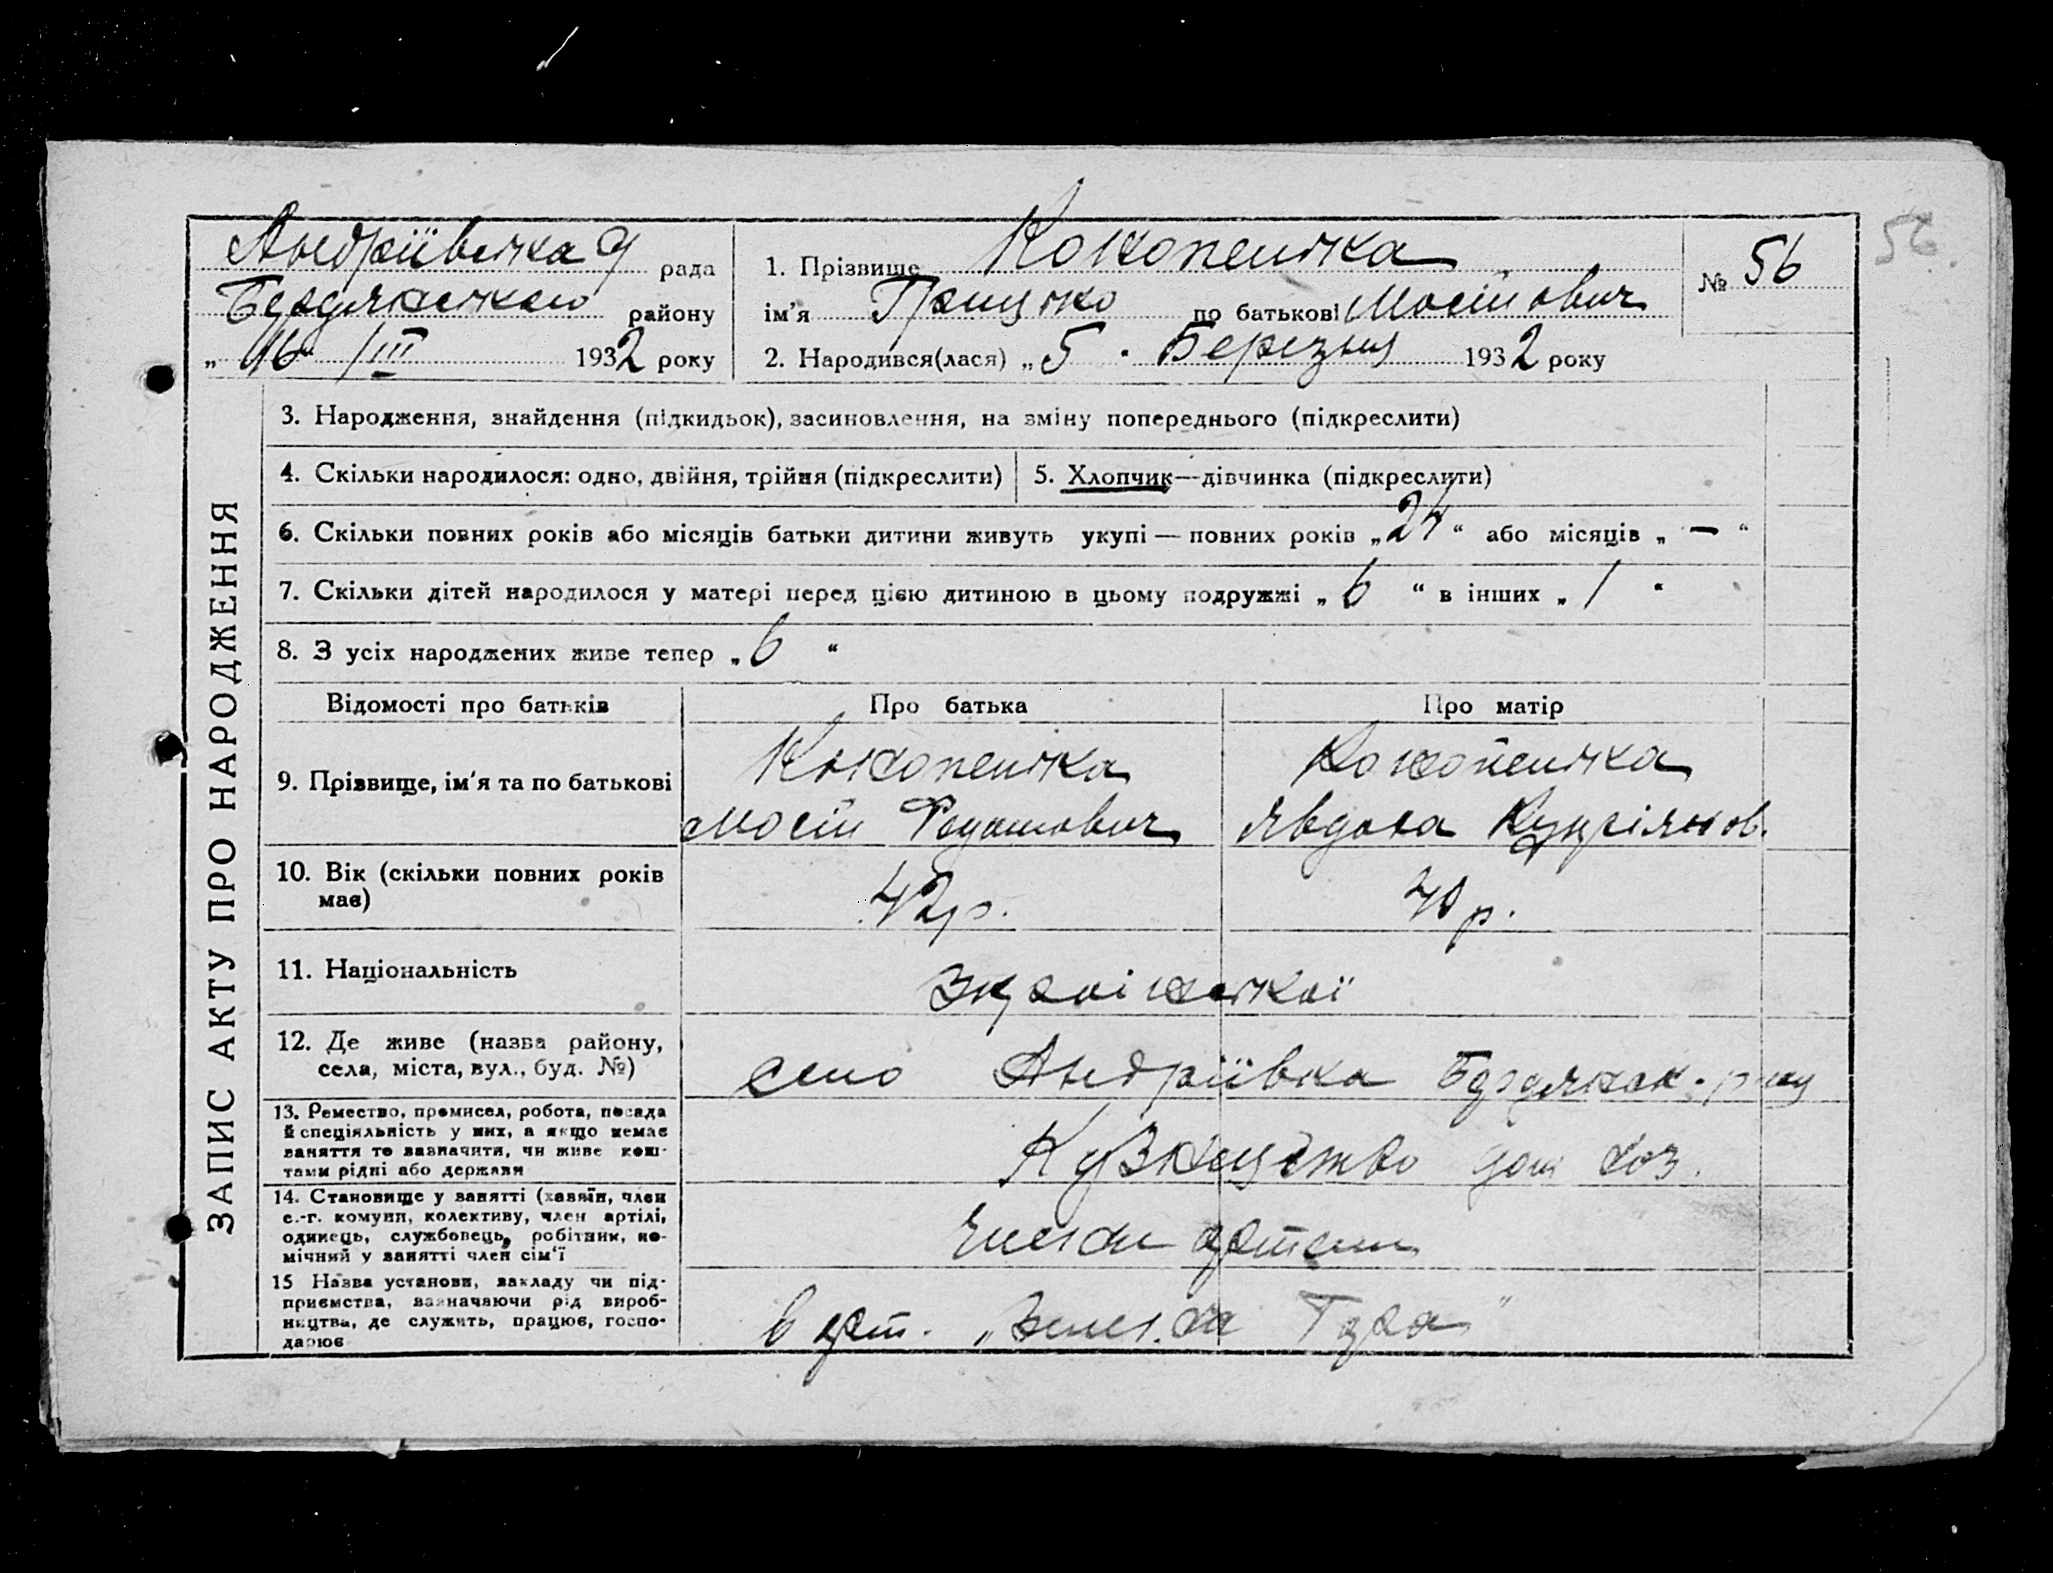 Андріївська рада
Бердянського району
„16 / III 1932 року
1. Прізвище Конопелька
№ 56
56.
ім'я Грицько по батькові Мосійович
2. Народився(лася) „5 . Березня 1932 року
ЗАПИС АКТУ ПРО НАРОДЖЕННЯ
3. Народження, знайдення (підкидьок), засиновлення, на зміну попереднього (підкреслити)
4. Скільки народилося: одно, двійня, трійня (підкреслити)
5. Хлопчик—дівчинка (підкреслити)
6. Скільки повних років або місяців батьки дитини живуть укупі — повних років „24“ або місяців „—“
7. Скільки дітей народилося у матері перед цією дитиною в цьому подружжі „6“ в інших „1“
8. З усіх народжених живе тепер „6“
Відомості про батьків
Про батька
Про матір
9. Прізвище, ім'я та по батькові
Конопелька
Мосій
Конопелька
Явдоха Купріянов.
10. Вік (скільки повних років
має)
42 р.
40 р.
11. Національність
12. Де живе (назва району,
села, міста, вул., буд. №)
село Андріївка Бердянськ.
13. Ремество, промисел, робота, посада
й спеціяльність у них, а якщо немає
заняття то зазначити, чи живе кош-
тами рідні або держави
дом хоз.
14. Становище у занятті (хазяїн, член
с.-г. комуни, колективу, член артілі,
одинець, службовець, робітник, по-
мічний у занятті член сім'ї
члени артели
15 Назва установи, закладу чи під-
приємства, зазначаючи рід вироб-
ництва, де служить, працює, госпо-
дарює
в арт. Гора“